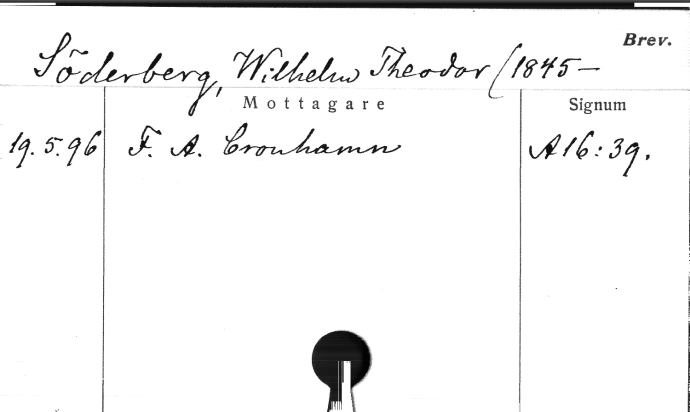 Brev.
Söderberg, Wilhelm Theodor (1845–
Mottagare Signum
19.5.96 F. A. Cronhamn A16:39.